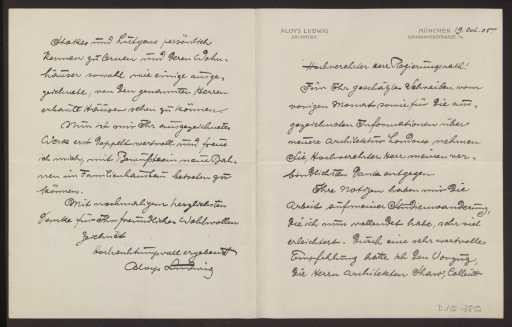 ALOYS LUDWIG
ARCHITEKT
MÜNCHEN 19. Oct. 05
Hochverehrter Herr Regierungsrath!
Für Ihr geschätztes Schreiben vom
vorigen Monat, sowie für die aus-
gezeichneten Informationen über
neuere Architektur Londons nehmen
Sie, Hochverehrter Herr meinen ver-
bindlichsten Dank entgegen.
Ihre Notizen haben mir die
Arbeit auf meiner Studienwanderung,
die ich nun vollendet habe, sehr viel
erleichtert. Durch eine sehr wertvolle
Empfehlung hatte ich den Vorzug,
die Herrn Architekten Shaw, Collcutt
Stokes und Lutyens persönlich
kennen zu lernen und deren Wohn-
häuser sowohl, wie einige ausge-
zeichnete, von den genannten Herren
erbaute Häuser sehen zu können.
Nun ist mir Ihr ausgezeichnetes
Werk erst doppelt wertvoll und freue
ich mich, mit Bewußtsein neue Bah-
nen im Familienhausbau betreten zu
können.
Mit nochmaligem herzlichsten
Danke für Ihr freundliches Wohlwollen
zeichnet
hochachtungsvoll ergebenst
Aloys Ludwig